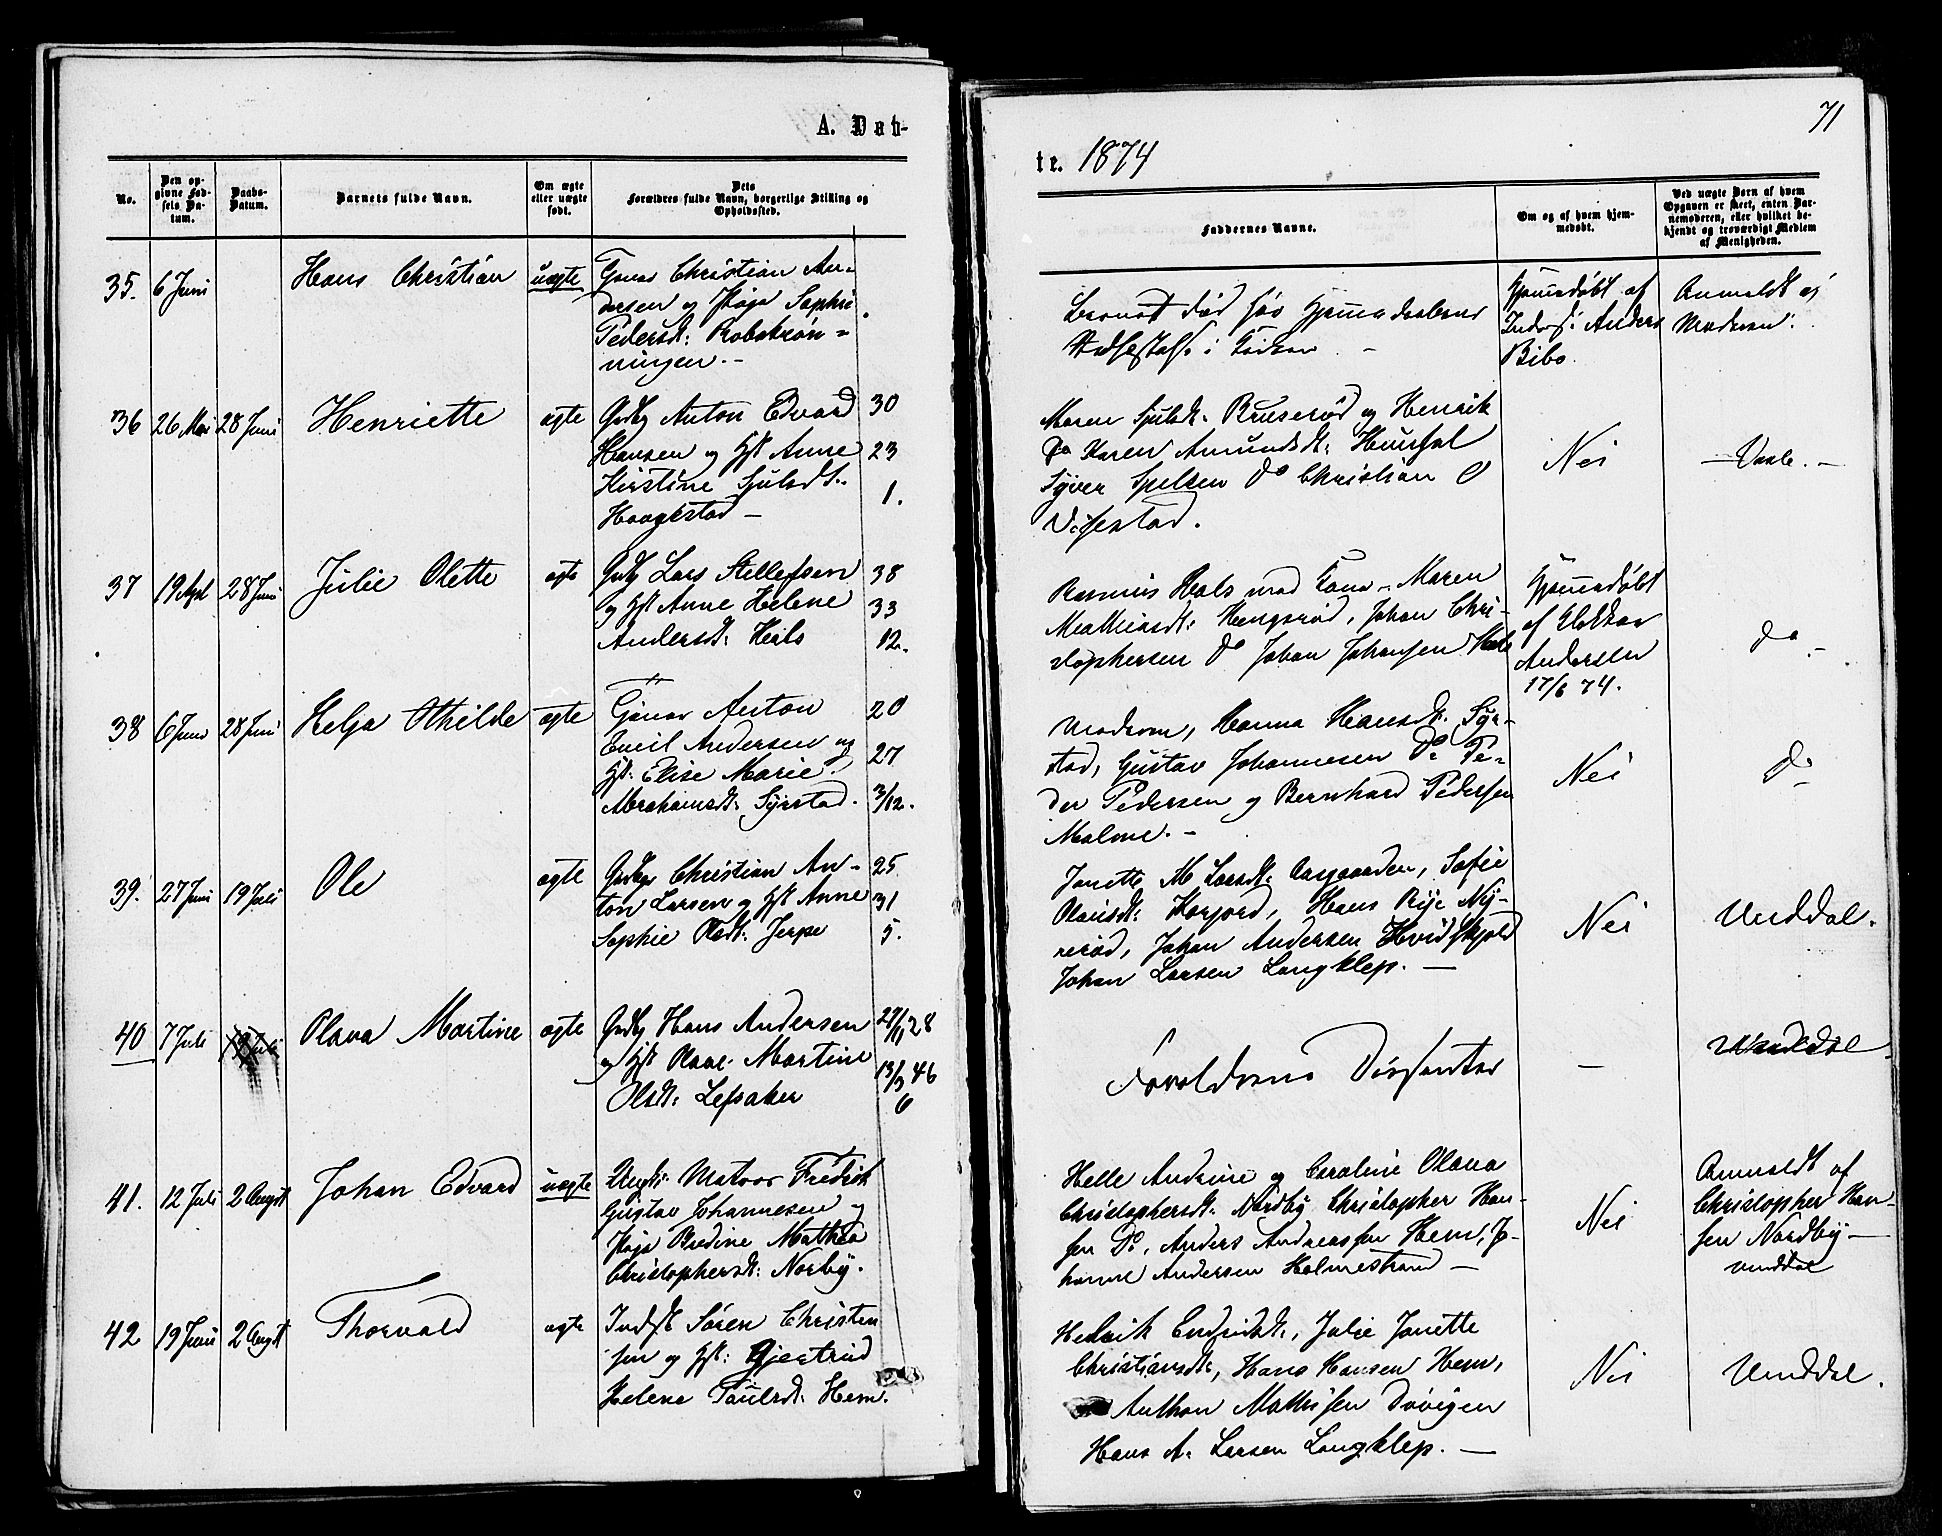 A. Døb-
No.
Den op-
givne Fød-
sels Da-
tum.
Daabs-
Datum.
Barnets fulde Navn.
Om ægte
eller uægte
født.
Dets
Forældres fulde Navn, borgerlige Stilling og
Opholdssted.
35. 6 Juni Hans Christian uægte
Christian An-
dersen og Pige Sophie
Pedersdt:
ningen. -
36 26 Mai 28 Juni Henriette ægte
Gbrg Anton Edvard 30
Hansen og Hst Anne 23
Kirstine Julsdt. 1.
Haugestad -
37 19 Apl 28 Juni Julie Olette ægte
Gbrg Lars Stillefsen 38
og Hst Anne Helene 33
Andersdt: Hals 12.
38 6 Juni 28 Juni Helga Othilde ægte
Anton 20
Emil Andersen og 27
Hst: Elise Marie
Abrahamsdt: Syrstad. 3/12.
39. 27 Juni 19 Juli Ole ægte
Christian An- 25.
ton Larsen og Hst Anne 31
Sophie Olsdt: Jerpe 5.
40 7 Juli Olava Martine ægte
Gbrg Hans Andersen
og Hst Olave Martine 13/3 46
Olsdt: Lefsaker 6
41. 12 Juli 2 Augst Johan Edvard uægte
Ungk: Matros Fredrik
Gustav Johannesen og
Pige Bredine Mathea
Christophersdt: Norby.
42 19 Juni 2 Augst Thorvald ægte
Indst Søren Christen
sen og Hst: Gjertrud
Helene Paulsdt: Hem.
71
te. 1874
Faddernes Navne.
Om og af hvem hjem-
medøbt.
Ved uægte Børn af hvem
Opgaven er skeet, enten Bar-
nemoderen, eller hvilket be-
kjendt og troværdigt Medlem
af Menigheden.
Barnet død før
i Kirken. -
Hjemmedøbt af
Inderst: Anders
Bibo.
Anmeldt af
Moderen.
Maren Julsdt. Bruserød og Henrik
Do Karen Amundsdt: Hunsal
Syver Do Christian
Nei
- Vaale. -
Rasmus Hals med Kone - Maren
Mathiasdt: Hengsrød, Johan Chri-
stophersen Do Johan Johansen Hals
Hjemmedøbt
af Klokker
Andersen
17/6 74.
do -
Moderen, Hanna Hansdt. Syr-
stad, Gustav Johannesen Do Pe-
der Pedersen og Bernhard Pedersen
Malme. -
Nei
do
Janette M Larsdt: Aasgaarden, Sofie
Olausdt: Korjord, Hans Rije Ny-
rerød, Johan Andersen Hvidskjold
Johan Larsen Langklep. -
Nei
Unddal.
Forældrene Dissenter
-
Unddal.
Helle Andrine og Caroline Olava
Christophersdt: Nordby Christopher Han-
sen Do, Anders Andreassen Hem, Jo-
hanne Andersen Holmestrand -
Nei
Anmeldt af
Christopher Han-
sen Nordby -
unddal
Julie Janette
Christiansdt:, Hans Hansen Hem,
Anthon Mathisen Døvigen
Hans A. Larsen Langklep. -
Nei
Unddal.